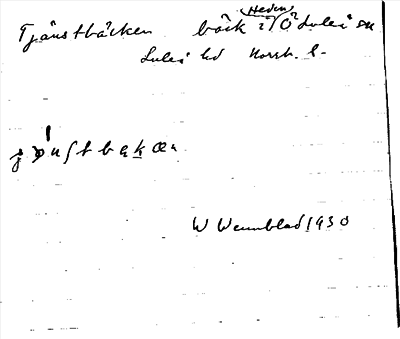 Tjänstbäcken bäck i Heden Ö Luleå sn
Luleå hd Norrb. l.
W Wennblad 1930